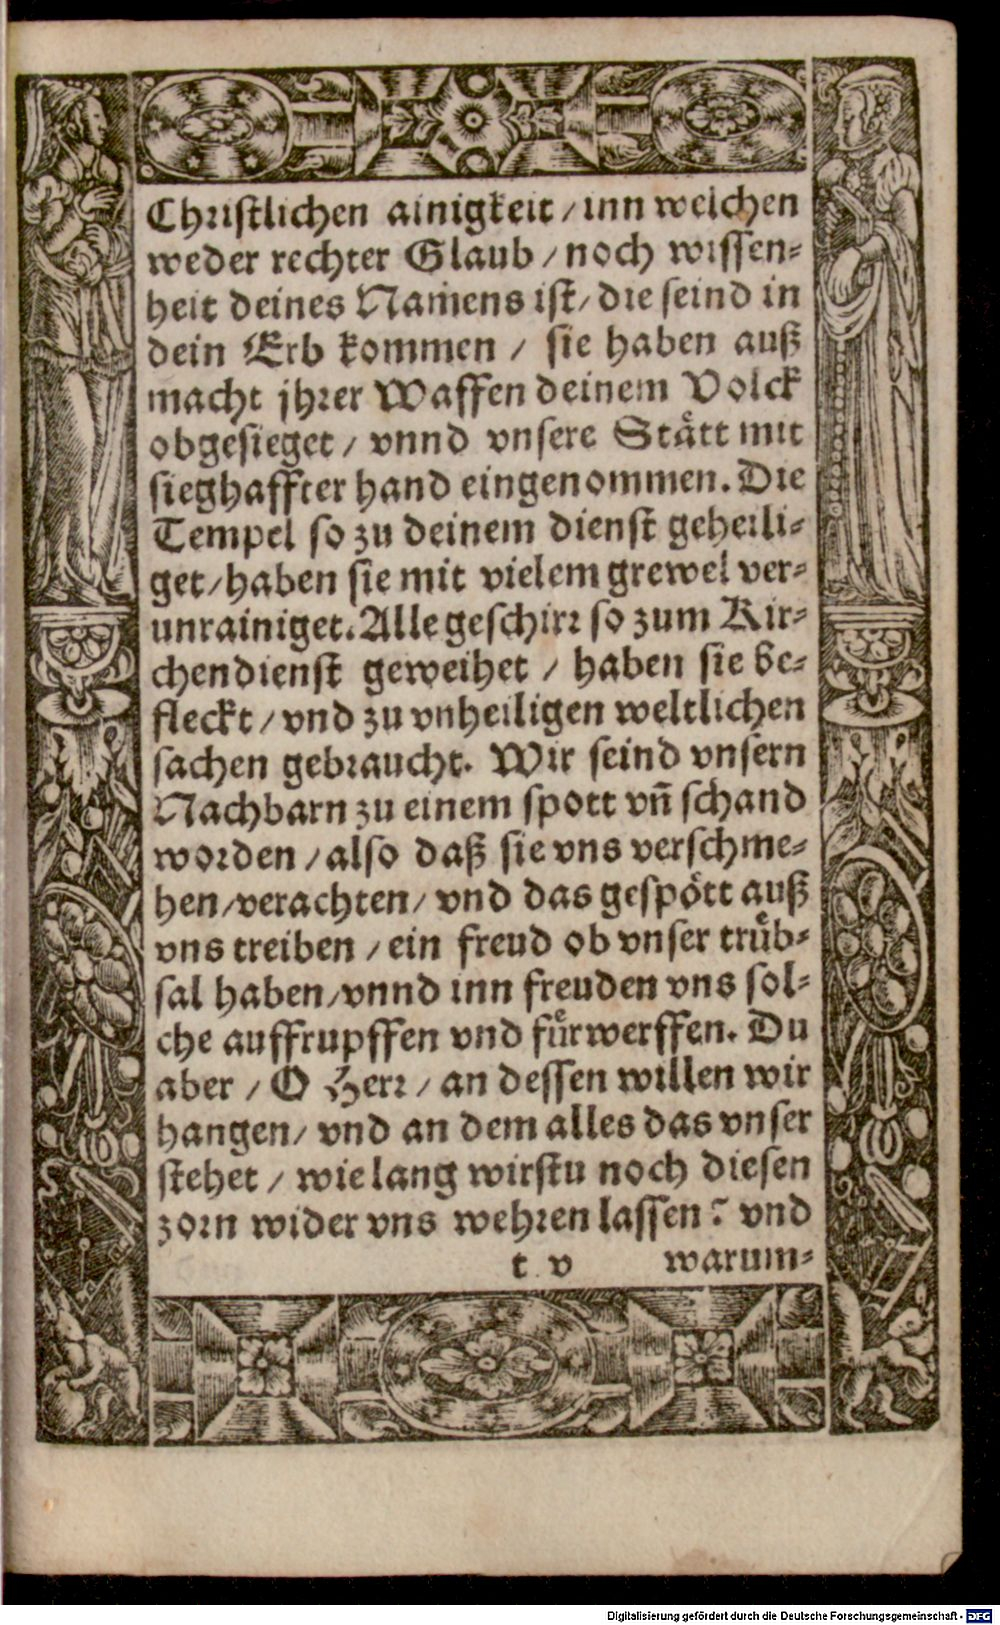 Christlichen ainigkeit / inn welchen
weder rechter Glaub / noch wissen-
heit deines Namens ist / die seind in
dein Erb kommen / sie haben auß
macht jhrer Waffen deinem Volck
obgesieget / vnnd vnsere Stått mit
sieghaffter hand eingenommen. Die
Tempel so zu deinem dienst geheili-
get / haben sie mit vielem grewel ver-
unrainiget. Alle geschirr so zum Kir-
chendienst geweihet / haben sie be-
fleckt / vnd zu vnheiligen weltlichen
sachen gebraucht. Wir seind vnsern
Nachbarn zu einem spott vñ schand
worden / also daß sie vns verschme-
hen / verachten / vnd das gespött auß
vns treiben / ein freud ob vnser trůb-
sal haben / vnnd inn freuden vns sol-
che auffrupffen vnd fürwerffen. Du
aber / O Herr / an dessen willen wir
hangen / vnd an dem alles das vnser
stehet / wie lang wirstu noch diesen
zorn wider vns wehren lassen? vnd
t v warum-
Digitalisierung gefördert durch die Deutsche Forschungsgemeinschaft - DFG